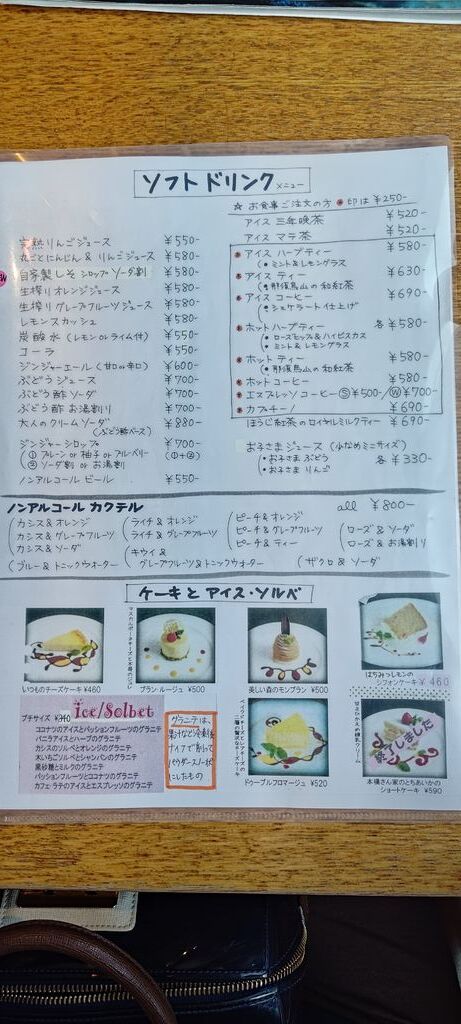 ソフトドリンク メニュー
☆ お食事ご注文の方 ●印は ¥250-
完熟りんごジュース ¥550-
丸ごとにんじん & りんごジュース ¥580-
自家製しそシロップ ソーダ割 ¥580-
生搾りオレンジジュース ¥580-
生搾りグレープフルーツジュース ¥580-
レモンスカッシュ ¥580-
炭酸水 (レモン or ライム付) ¥550-
コーラ ¥550-
ジンジャーエール (甘口 or 辛口) ¥600-
ぶどうジュース ¥700-
ぶどう酢ソーダ ¥700-
ぶどう酢お湯割り ¥700-
大人のクリームソーダ ¥880-
(ぶどう酢ベース)
ジンジャーシロップ ¥700-
① プレーン or 柚子 or ブルベリー (①+②)
② ソーダ割 or お湯割
ノンアルコールビール ¥550-
アイス 三年晩茶 ¥520-
アイス マテ茶 ¥520-
アイス ハーブティー ¥580-
・ミント&レモングラス
アイス ティー ¥630-
・那須烏山の和紅茶
アイス コーヒー ¥690-
・シェケラート仕上げ
ホットハーブティー 各¥580-
・ローズヒップ&ハイビスカス
・ミント&レモングラス
ホット ティー ¥580-
・那須烏山の和紅茶
ホットコーヒー ¥580-
エスプレッソコーヒー Ⓢ¥500-/Ⓦ¥700-
カプチーノ ¥690-
ほうじ紅茶のロイヤルミルクティー ¥690-
お子さまジュース (少なめミニサイズ)
・お子さまぶどう
・お子さまりんご 各¥330-
ノンアルコール カクテル all ¥800-
カシス&オレンジ
カシス&グレープフルーツ
カシス&ソーダ
ブルー&トニックウォーター
ライチ&オレンジ
ライチ&グレープフルーツ
キウイ&
グレープフルーツ&トニックウォーター
ピーチ&オレンジ
ピーチ&グレープフルーツ
ピーチ&ティー
ザクロ&ソーダ
ローズ&ソーダ
ローズ&お湯割り
ケーキと アイス・ソルベ
いつものチーズケーキ ¥460
マスカルポーネチーズと木苺のジュレ
ブラン・ルージュ ¥500
美しい森のモンブラン ¥500
はちみつレモンの
シフォンケーキ ¥460
Ice/Solbet
プチサイズ ¥340
ココナツのアイスとパッションフルーツのグラニテ
バニラアイスとハーブのグラニテ
カシスのソルベとオレンジのグラニテ
木いちごソルベとシャンパンのグラニテ
黒砂糖とミルクのグラニテ
パッションフルーツとココナツのグラニテ
カフェ・ラテのアイスとエスプレッソのグラニテ
グラニテは、
果汁などを冷凍後
ナイフで削って
パウダースノー状
にしたもの
ドゥーブルフロマージュ ¥520
終了しました
本橋さん家のとちあいかの
ショートケーキ ¥590